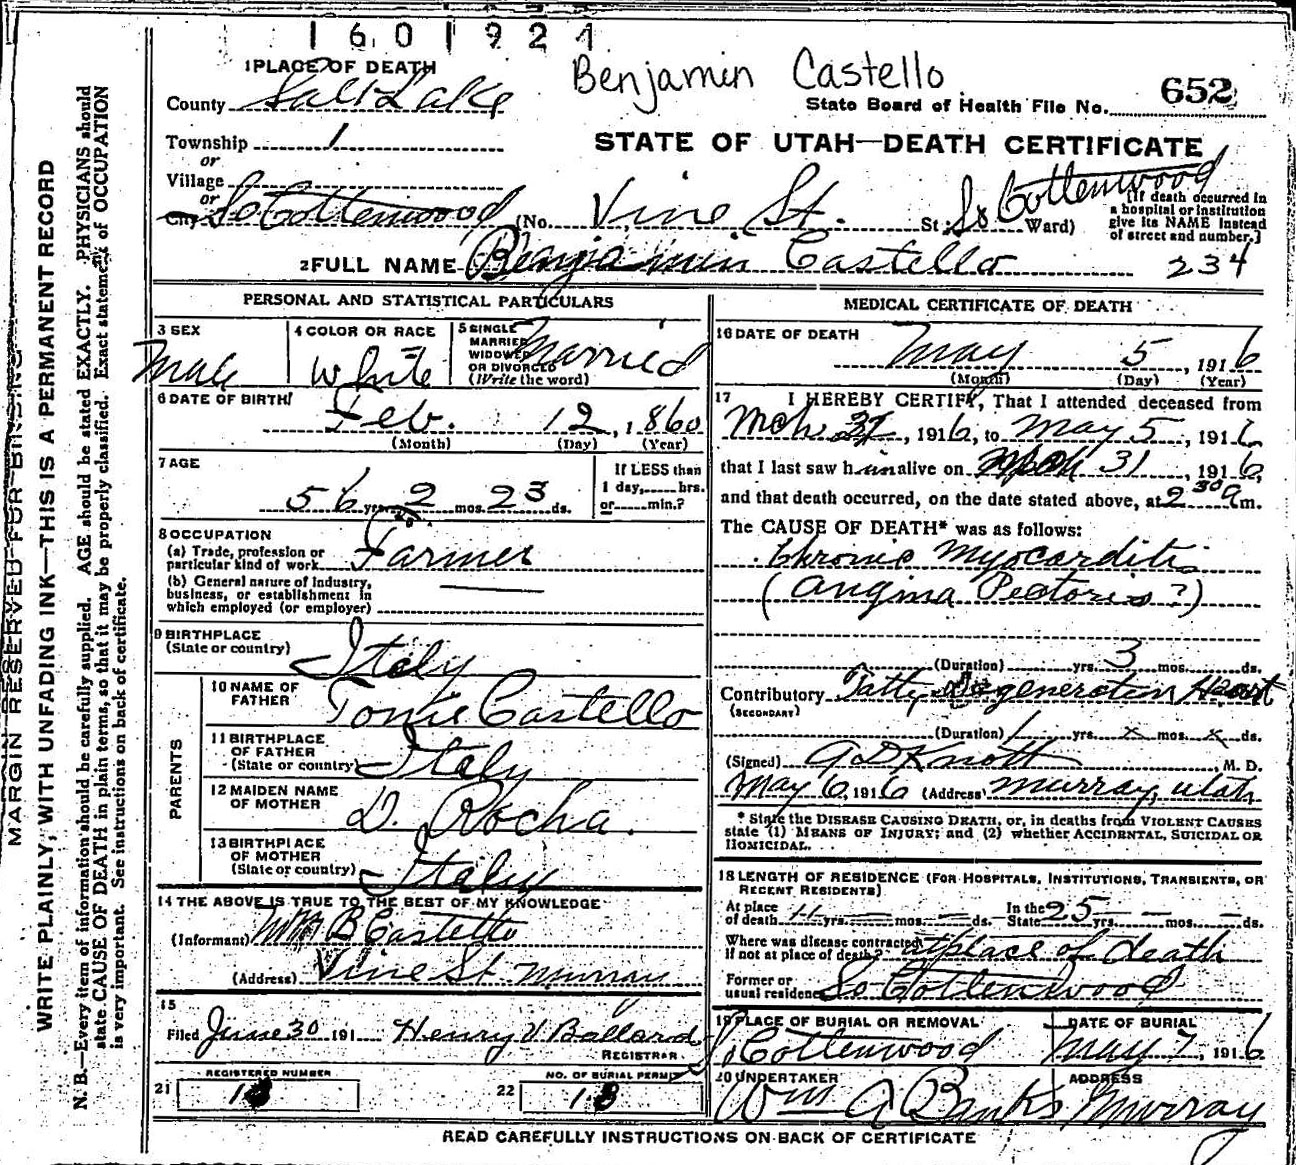 1601924
Benjamin Castello
1 PLACE OF DEATH
County Salt Lake
State Board of Health File No. 652
Township 1
or
Village
or
City So Cottenwood
STATE OF UTAH—DEATH CERTIFICATE
(No. Vine St. St; So Cottenwood Ward)
[If death occurred in a hospital or institution give its NAME instead of street and number.]
2 FULL NAME Benjamin Castello 234
PERSONAL AND STATISTICAL PARTICULARS
3 SEX Male
4 COLOR OR RACE White
5 SINGLE MARRIED WIDOWED OR DIVORCED (Write the word) Married
6 DATE OF BIRTH
Feb. 12, 1860
(Month) (Day) (Year)
7 AGE
56 yrs. 2 mos. 23 ds.
If LESS than 1 day, hrs. or min.?
8 OCCUPATION
(a) Trade, profession or particular kind of work Farmer
(b) General nature of Industry, business, or establishment in which employed (or employer)
9 BIRTHPLACE (State or country) Italy
PARENTS
10 NAME OF FATHER Tonie Castello
11 BIRTHPLACE OF FATHER (State or country) Italy
12 MAIDEN NAME OF MOTHER D. Rocha.
13 BIRTHPLACE OF MOTHER (State or country) Italy
14 THE ABOVE IS TRUE TO THE BEST OF MY KNOWLEDGE
(Informant) B Castello
(Address) Vine St Murray
15
Filed June 30 191 Henry V Ballard
REGISTRAR
REGISTERED NUMBER
21 18
NO. OF BURIAL PERMIT
22 18
MEDICAL CERTIFICATE OF DEATH
16 DATE OF DEATH May 5, 1916
(Month) (Day) (Year)
17 I HEREBY CERTIFY, That I attended deceased from
Mch 31, 1916, to May 5, 1916
that I last saw him alive on 31, 1916,
and that death occurred, on the date stated above, at 2 30 a m.
The CAUSE OF DEATH* was as follows:
Chronic Myocarditis
(Angina Pectoris?)
(Duration) yrs. 3 mos. ds.
Contributory Fatty Degeneration Heart
(SECONDARY)
(Duration) 1 yrs. x mos. x ds.
(Signed) A D Knott, M. D.
May 6, 1916 (Address) Murray, Utah
* State the DISEASE CAUSING DEATH, or, in deaths from VIOLENT CAUSES state (1) MEANS OF INJURY; and (2) whether ACCIDENTAL, SUICIDAL OR HOMICIDAL.
18 LENGTH OF RESIDENCE (FOR HOSPITALS, INSTITUTIONS, TRANSIENTS, OR RECENT RESIDENTS)
At place of death 11 yrs. — mos. — ds. In the State 25 yrs. — mos. — ds.
Where was disease contracted If not at place of death? at place of death
Former or usual residence So Cottenwood
19 PLACE OF BURIAL OR REMOVAL So Cottenwood
DATE OF BURIAL May 7, 1916
20 UNDERTAKER Wm A Banks
ADDRESS Murray
READ CAREFULLY INSTRUCTIONS ON BACK OF CERTIFICATE
MARGIN RESERVED FOR BINDING
WRITE PLAINLY, WITH UNFADING INK—THIS IS A PERMANENT RECORD
N. B.—Every item of information should be carefully supplied. AGE should be stated EXACTLY. PHYSICIANS should
state CAUSE OF DEATH in plain terms, so that it may be properly classified. Exact statement of OCCUPATION
is very important. See instructions on back of certificate.